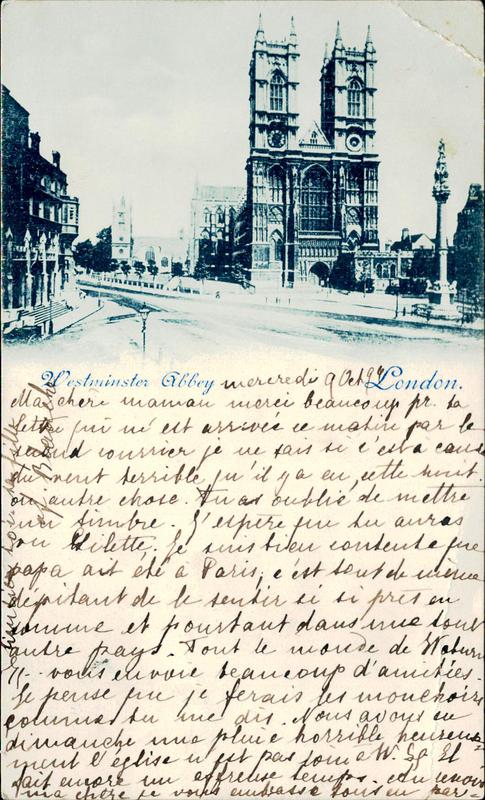 Westminster Abbey mercredi 9 Oct London.
Ma chere maman merci beaucoup pr. ta
lettre qui m'est arrivée ce matin par le
second courrier je ne sais si c'est a cause
du vent terrible qu'il y a eu cette nuit.
ou autre chose. Tu as oublié de mettre
un timbre. J'espère que tu auras
vu Lilette. Je suis bien contente que
papa ait été à Paris, c'est tout de même
dépitant de le sentir si si près en
somme et pourtant dans une tout
autre pays. Tout le monde de Woburn
11- vous envoie beaucoup d'amitiés.
Je pense que je ferais les mouchoirs
comme tu me dis. Nous avons eu
dimanche une pluie horrible heureuse-
ment l'église n'est pas loin W. Sq. Il
fait encore un affreux temps. au revoir
ma chère je vous embrasse tous en par-